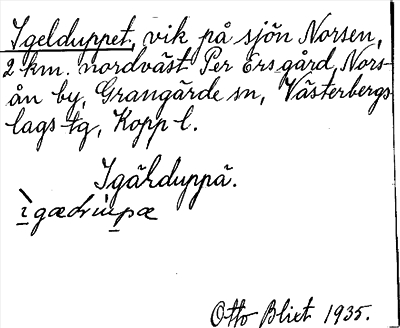 Igelduppet, vik på sjön Norsen,
2 km. nordväst Per Ers gård, Nors-
ån by, Grangärde sn, Västerbergs-
lags tg, Kopp l.
Igälduppä.
Otto Blixt 1935.